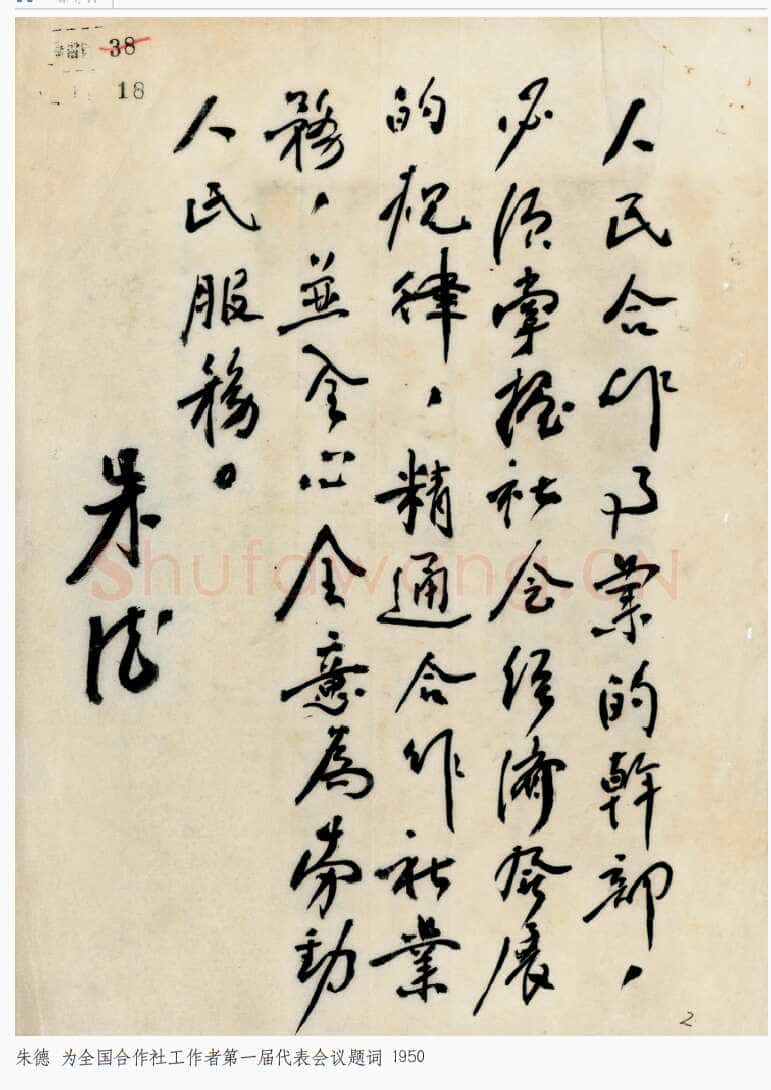 38
18
人民合作事業的幹部，
必須掌握社会经濟發展
的規律，精通合作社業
務，並全心全意為劳動
人民服務。
朱德
2
Shufawang.CN
朱德 为全国合作社工作者第一届代表会议题词 1950